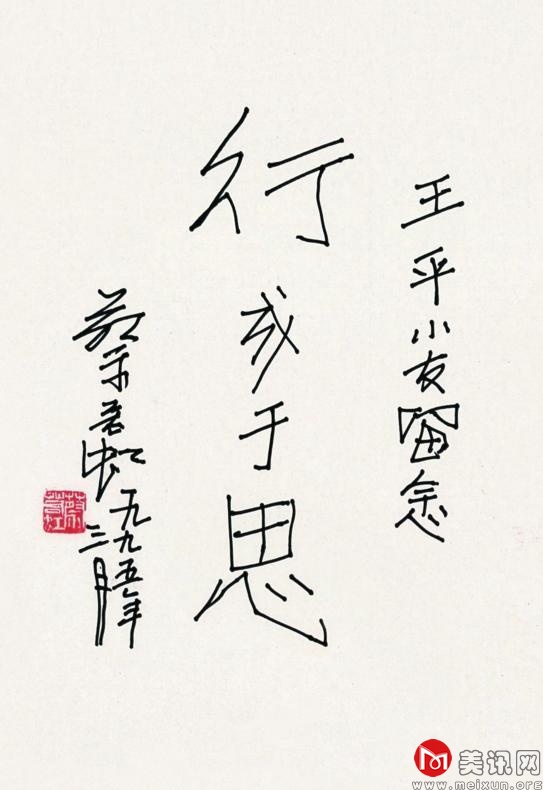 王平小友留念
行成于思
蔡若虹
一九九五年
三月
蔡若虹
美讯网
www.meixun.org